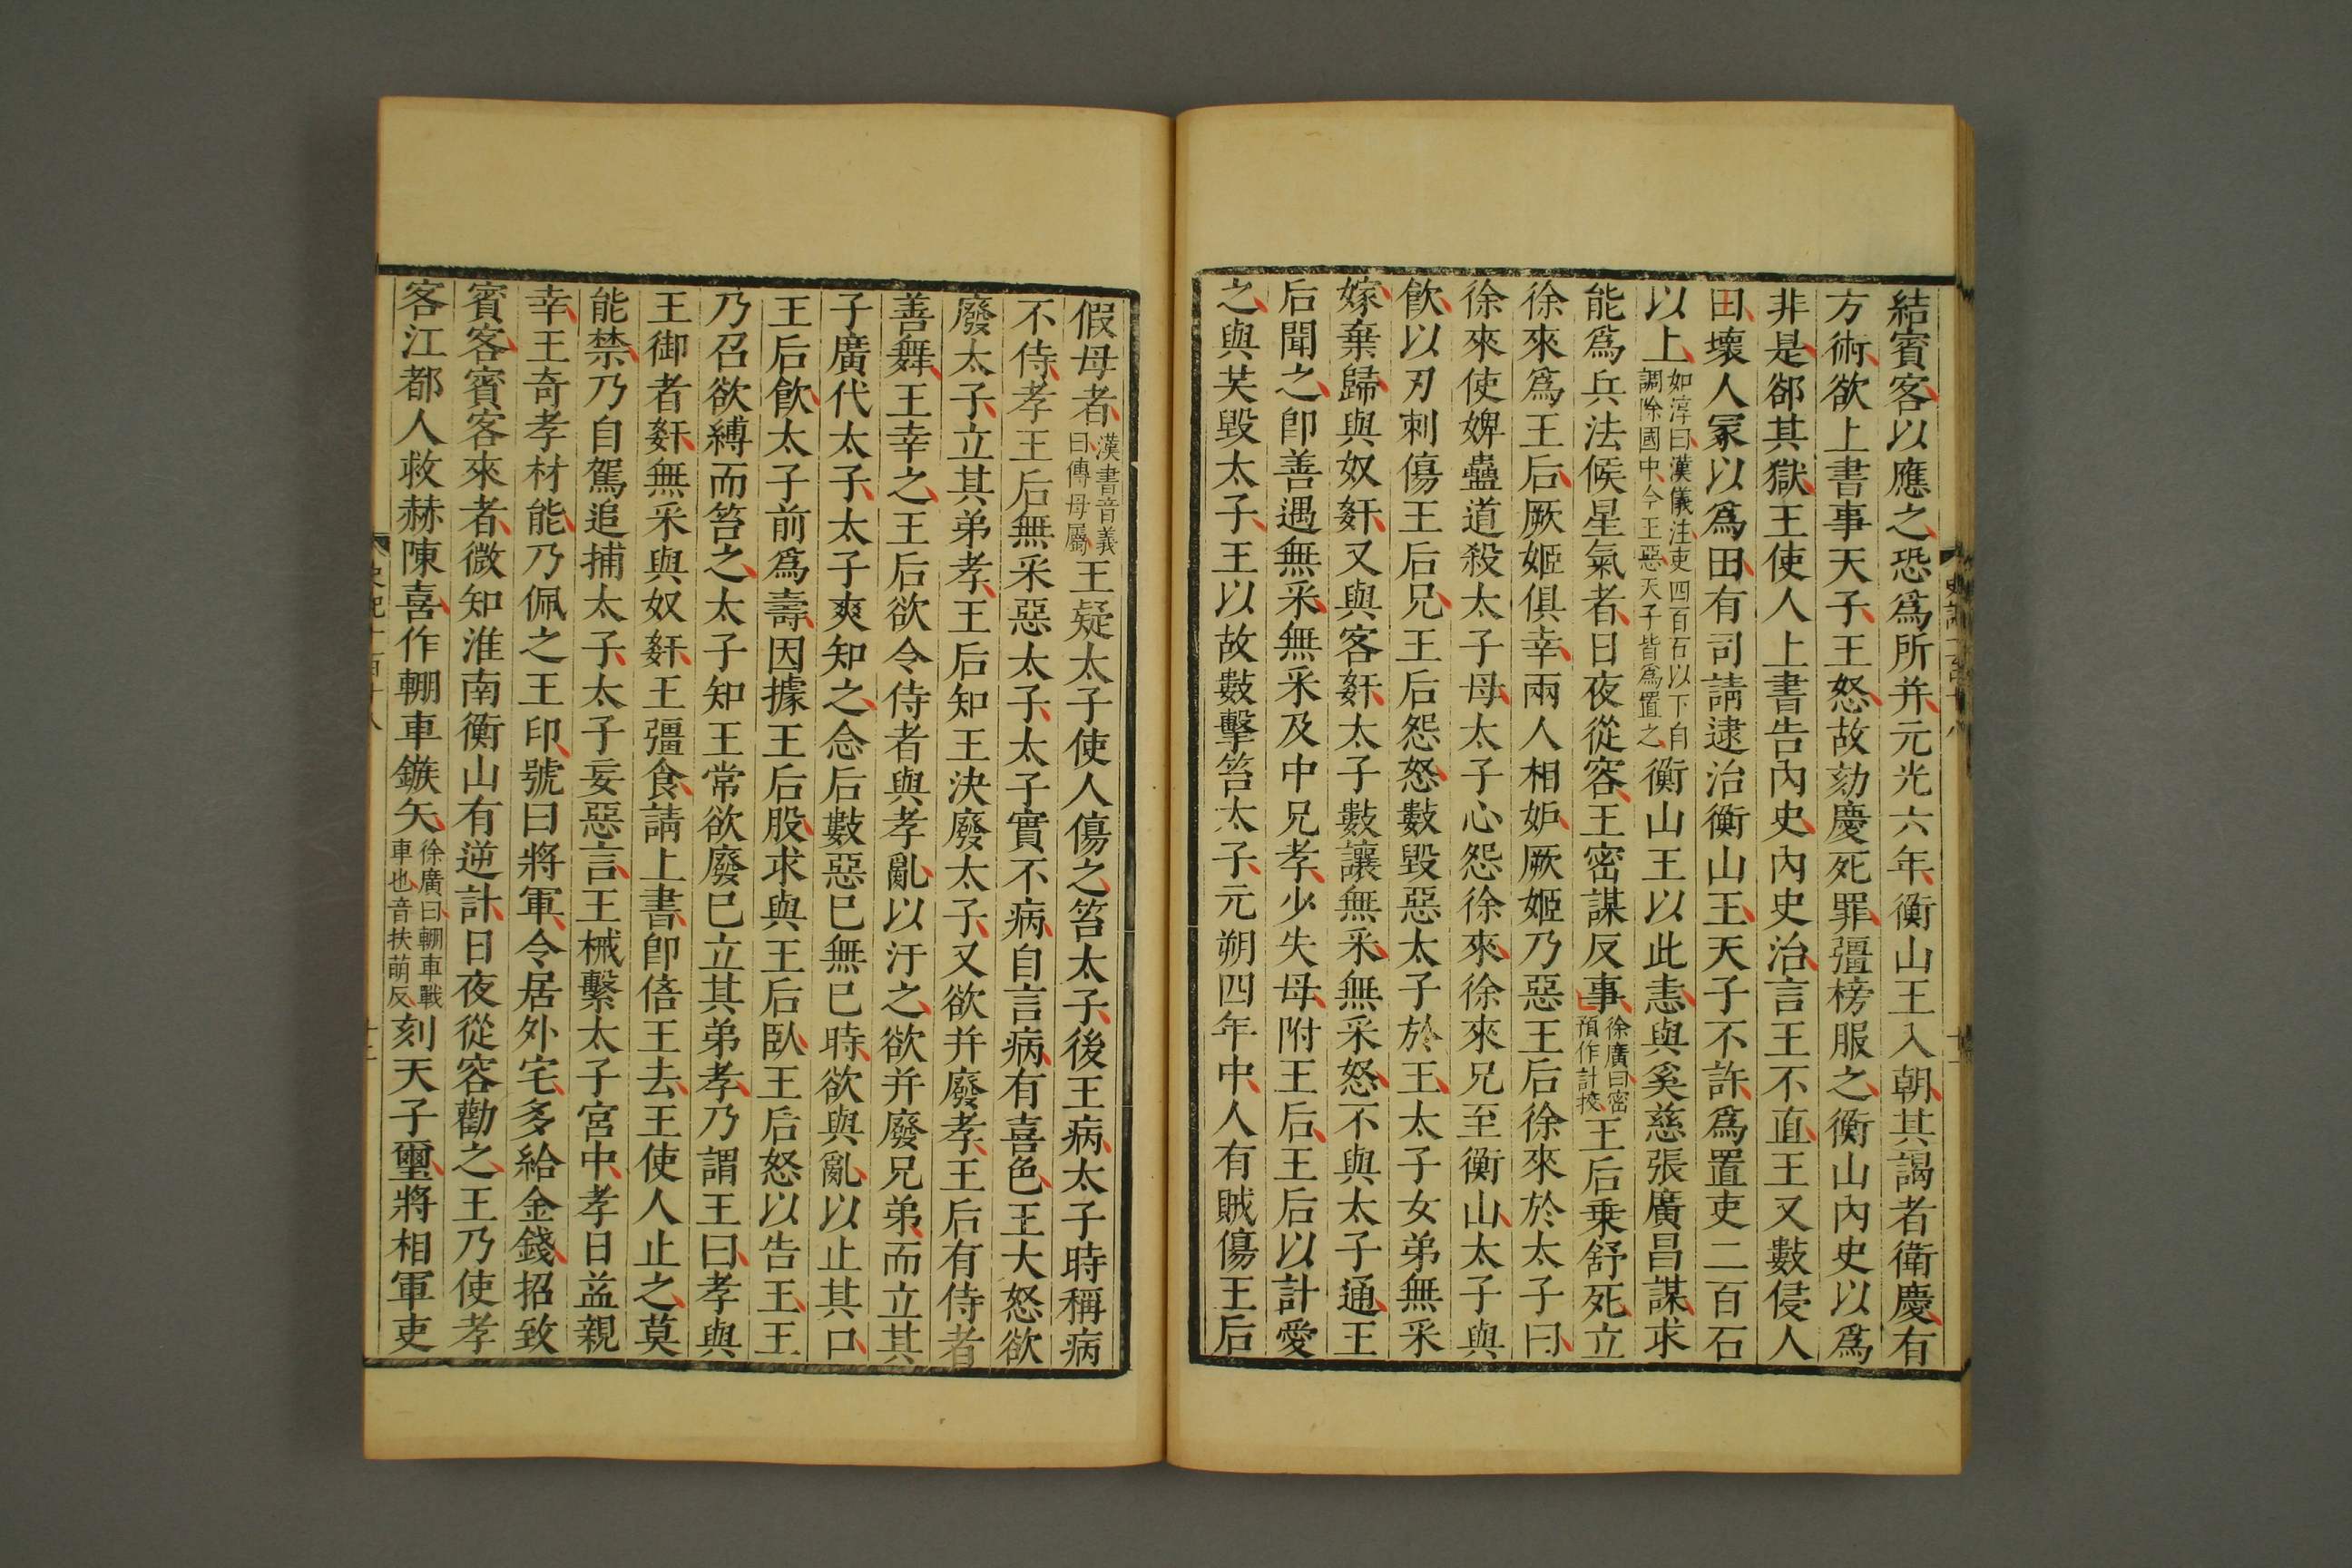 結賓客以應之恐爲所并元光六年衡山王入朝其謁者衛慶有
方術欲上書事天子王怒故劾慶死罪彊榜服之衡山內史以爲
非是郤其獄王使人上書告內史內史治言王不直王又數侵人
田壞人冢以爲田有司請逮治衡山王天子不許爲置吏二百石
以上如淳曰漢儀注吏四百石以下自調除國中今王惡天子皆爲置之衡山王以此恚與奚慈張廣昌謀求
能爲兵法候星氣者日夜從容王密謀反事徐廣曰密預作計挍王后乗舒死立
徐來爲王后厥姬俱幸兩人相妒厥姬乃惡王后徐來於太子曰
徐來使婢蠱道殺太子母太子心怨徐來徐來兄至衡山太子與
飮以刃刺傷王后兄王后怨怒數毀惡太子於王太子女弟無采
嫁棄歸與奴姧又與客姧太子數讓無采無采怒不與太子通王
后聞之卽善遇無采無采及中兄孝少失母附王后王后以計愛
之與共毀太子王以故數擊笞太子元朔四年中人有賊傷王后
史記一百十八
假母者漢書音義曰傅母屬王疑太子使人傷之笞太子後王病太子時稱病
不侍孝王后無采惡太子太子實不病自言病有喜色王大怒欲
廢太子立其弟孝王后知王決廢太子又欲并廢孝王后有侍者
善舞王幸之王后欲令侍者與孝亂以汙之欲并廢兄弟而立其
子廣代太子太子爽知之念后數惡已無已時欲與亂以止其口
王后飮太子前爲壽因據王后股求與王后臥王后怒以告王王
乃召欲縛而笞之太子知王常欲廢已立其弟孝乃謂王曰孝與
王御者姧無采與奴姧王彊食請上書卽倍王去王使人止之莫
能禁乃自駕追捕太子太子妄惡言王械繫太子宮中孝日益親
幸王奇孝材能乃佩之王印號曰將軍令居外宅多給金錢招致
賓客賓客來者微知淮南衡山有逆計日夜從容勸之王乃使孝
客江都人救赫陳喜作輣車鏃矢徐廣曰輣車戰車也音扶萌反刻天子璽將相軍吏
史記一百十八